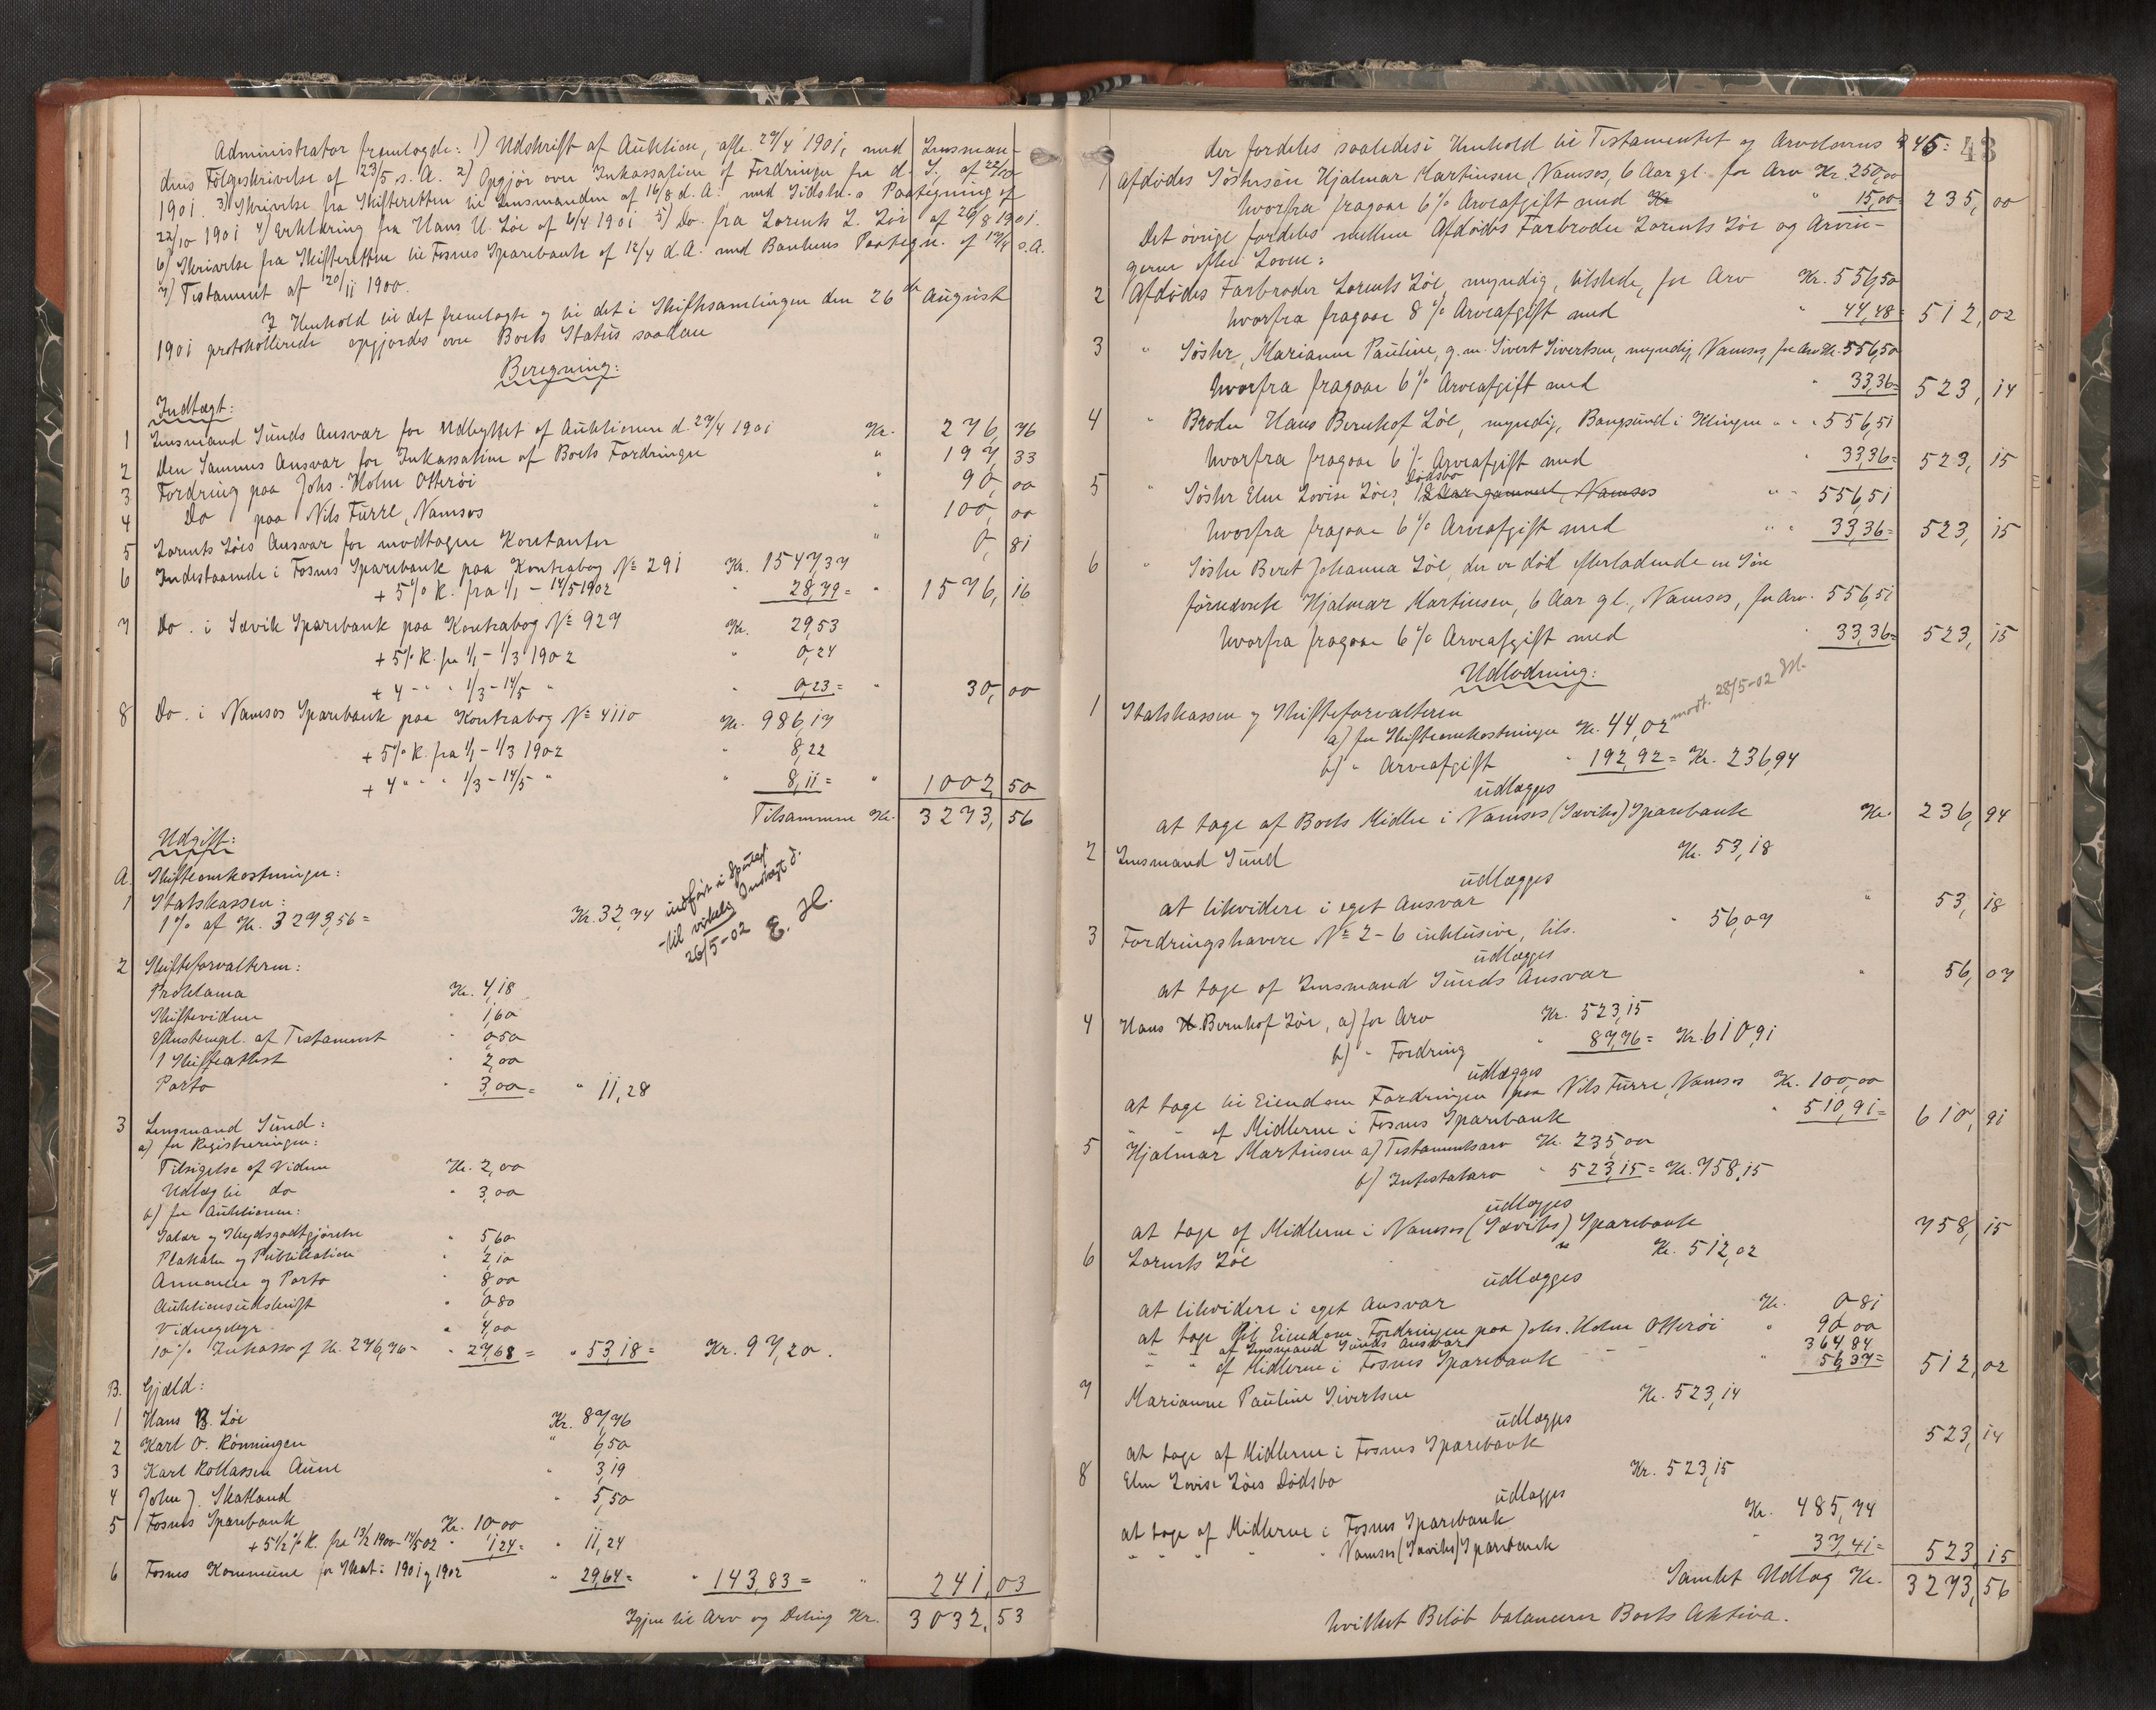 Administrator fremlagde: 1) Udskrift af Auktion, afh. 27/4 1901, med Lensman-
dens Følgeskrivelse af 23/5 s. A. 2) Opgjør over Inkassation af Fordringer fra d. S. af 22/10
1901. 3) Skrivelse fra Skifteretten til Lensmanden af 16/8 d. A. med Sidstn.s Paategning af
22/10 1901 4) Erklæring fra Hans U. Løe af 6/4 1901 5) Do. fra Lorents L. Løe af 26/8 1901.
6) Skrivelse fra Skifteretten til Fosnes Sparebank af 12/4 d.A. med Bankens Paategn. af 17/4 s.A.
7) Testament af 20/11 1900.
I Henhold til det fremlagte og til det i Skiftesamlingen den 26de August
1901 protokollerede opgjordes over Boets Status saadan
Beregning:
Indtægt:
1 Lensmand Sunds Ansvar for Udbyttet af Auktionen d. 27/4 1901 Kr. 276,76
2 Den Sammes Ansvar for Inkassation af Boets Fordringer " 197,33
3 Fordring paa Johs. Holm Otterøi " 90,00
4 Do paa Nils Furre, Namsos " 100,00
5 Lorents Løes Ansvar for modtagne Kontanter " 0,81
6 Indestaaende i Fosnes Sparebank paa Kontrabog No 291 Kr. 1547,37
+ 5% R. fra 1/1 - 14/5 1902 " 28,79 = " 1576,16
7 Do. i Sævik Sparebank paa Kontrabog No 927 Kr. 29,53
+ 5% R. fra 1/1 - 1/3 1902 " 0,24
+ 4 " " " 1/3 - 14/5 " " 0,23 = " 30,00
8 Do. i Namsos Sparebank paa Kontrabog No 4110 Kr. 986,17
+ 5% R. fra 1/1 - 1/3 1902 " 8,22
+ 4 " " " 1/3 - 14/5 " " 8,11 = " 1002,50
Tilsammen Kr. 3273,56
Udgift:
A. Skifteomkostninger:
1 Statskassen:
1% af Kr. 3273,56 = Kr. 32,74
indført i
til virkelig Indtægt d.
26/5-02 E. H.
2 Skifteforvalteren:
Proklama Kr. 4,18
Skiftevidner " 1,60
Efterstempl. af Testament " 0,50
1 Skifteattest " 2,00
Porto " 3,00 = " 11,28
3 Lensmand Sund:
a) for Registreringen:
Tilsigelse af Vidner Kr. 2,00
Udlæg til do " 3,00
b) for Auktionen:
Salær og Skydsgodtgjørelse " 5,60
Plakater og Publikation " 2,10
Annoncer og Porto " 8,00
Auktionsudskrift " 0,80
Vidnegebyr " 4,00
10% Inkasso af Kr. 276,76 = " 27,68 = " 53,18 = Kr. 97,20.
B. Gjæld:
1 Hans B. Løe Kr. 87,76
2 Karl O. Rønningen " 6,50
3 Karl Rollassen Aune " 3,19
4 John J. Skatland " 5,50
5 Fosnes Sparebank Kr. 10,00
+ 5 1/2 % R. fra 13/2 1900 - 14/5 02 " 1,24 = " 11,24
6 Fosnes Kommune for Skat: 1901 og 1902 " 29,64 = " 143,83 = " 241,03
Igjen til Arv og Deling Kr. 3032,53
der fordeles saaledes i Henhold til Testamentet og Arvelovens § 45: 43
1 Afdødes Søstersøn Hjalmar Martinsen, Namsos, 6 Aar gl. for Arv Kr. 250,00
hvorfra fragaar 6% Arveafgift med Kr. " 15,00 = 235,00
Det øvrige fordeles mellem Afdødes Farbroder Lorents Løe og Arvin-
gerne efter Loven:
2 Afdødes Farbroder Lorents Løe, myndig, tilstede, for Arv Kr. 556,50
hvorfra fragaar 8% Arveafgift med " 44,48 = 512,02
3 " Søster, Marianne Pauline, g. m. Sivert Sivertsen, myndig, Namsos, for Arv Kr. 556,50
hvorfra fragaar 6% Arveafgift med " 33,36 = 523,14
4 " Broder Hans Bernhof Løe, myndig, Bangsund i Klingen " " " 556,51
hvorfra fragaar 6% Arveafgift med " 33,36 = 523,15
5 " Søster Elen Lovise Løes, Dødsbo 18 Aar gammel, Namsos " " 556,51
hvorfra fragaar 6% Arveafgift med " " 33,36 = 523,15
6 " Søster Beret Johanna Løe, der er død efterladende en Søn
førnævnte Hjalmar Martinsen, 6 Aar gl., Namsos, for Arv. 556,51
hvorfra fragaar 6% Arveafgift med " 33,36 = 523,15
Udlodning:
1 Statskassen og Skifteforvalteren
a) for Skifteomkostninger Kr. 44,02 modt. 28/5-02
b) " Arveafgift " 192,92 = Kr. 236,94
udlægges
at tage af Boets Midler i Namsos (Sæviks) Sparebank Kr. 236,94
2 Lensmand Sund Kr. 53,18
udlægges
at likvidere i eget Ansvar " 53,18
3 Fordringshavere No 2-6 inklusive, tils. " 56,07
udlægges
at tage af Lensmand Sunds Ansvar " 56,07
4 Hans Bernhof Løe, a) for Arv Kr. 523,15
b) " Fordring " 87,76 = Kr. 610,91
udlægges
at tage til Eiendom Fordringen paa Nils Furre, Namsos Kr. 100,00
" " af Midlerne i Fosnes Sparebank " 510,91 = 610,91
5 Hjalmar Martinsen a) Testamentsarv Kr. 235,00
b) Intestatarv " 523,15 = Kr. 758,15
udlægges
at tage af Midlerne i Namsos (Sæviks) Sparebank 758,15
6 Lorents Løe Kr. 512,02
udlægges
at likvidere i eget Ansvar Kr. 0,81
at tage til Eiendom Fordringen paa Johs. Holm Otterøi " 90,00
" " af Lensmand Sunds Ansvar " " " 364,84
" " af Midlerne i Fosnes Sparebank " 56,37 = 512,02
7 Marianne Pauline Sivertsen Kr. 523,14
udlægges
at tage af Midlerne i Fosnes Sparebank 523,14
8 Elen Lovise Løes Dødsbo Kr. 523,15
udlægges
at tage af Midlerne i Fosnes Sparebank Kr. 485,74
" " " " " Namsos (Sæviks) Sparebank " 37,41 = 523,15
Samlet Udlæg Kr. 3273,56
hvilket Beløb balancerer Boets Aktiva.